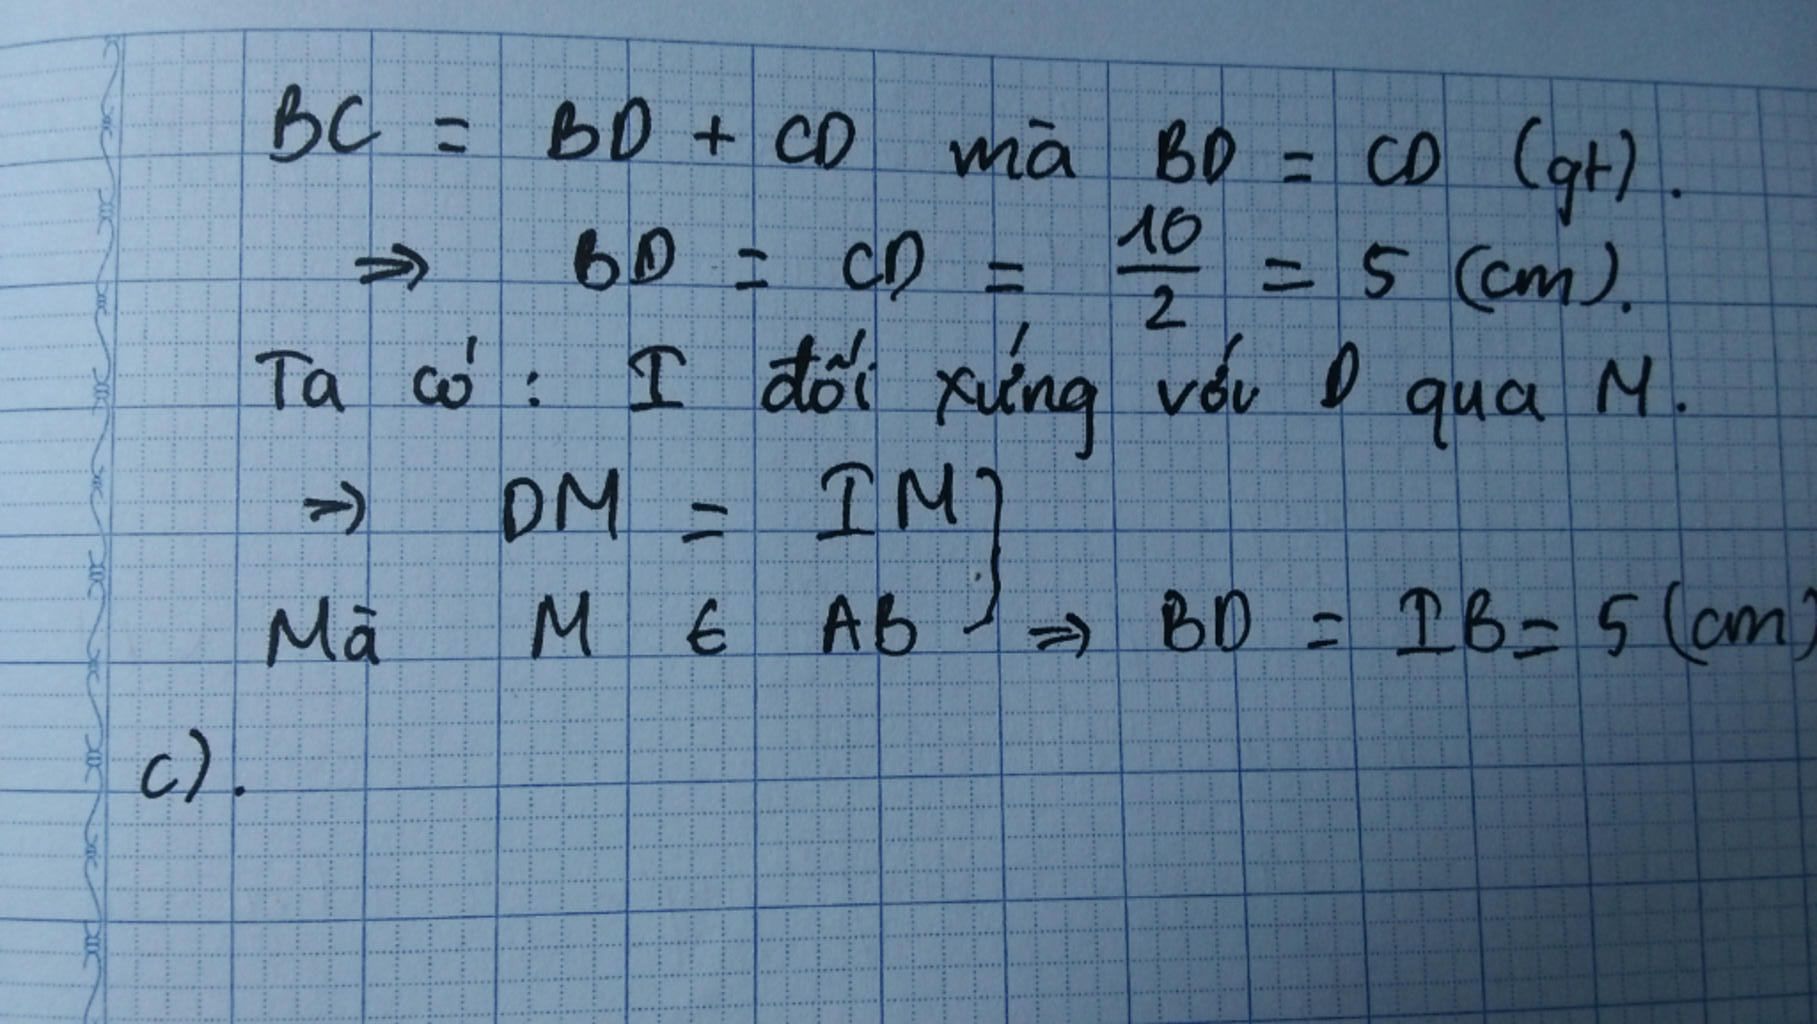 BC = BD + CD mà BD = CD (gt).
=> BD = CD = 10/2 = 5 (cm).
Ta có : I đối xứng với D qua M.
=> DM = IM
Mà M ∈ AB } => BD = IB = 5 (cm)
c).